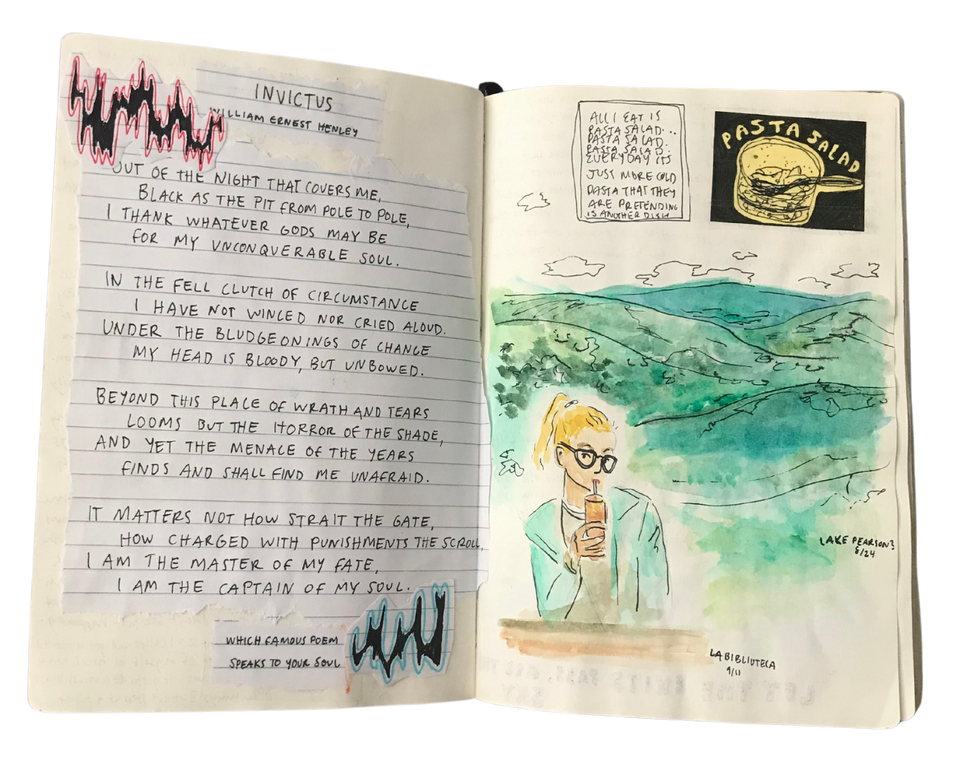 INVICTUS
WILLIAM ERNEST HENLEY
OUT OF THE NIGHT THAT COVERS ME,
BLACK AS THE PIT FROM POLE TO POLE,
I THANK WHATEVER GODS MAY BE
FOR MY UNCONQUERABLE SOUL.
IN THE FELL CLUTCH OF CIRCUMSTANCE
I HAVE NOT WINCED NOR CRIED ALOUD.
UNDER THE BLUDGEONINGS OF CHANCE
MY HEAD IS BLOODY, BUT UNBOWED.
BEYOND THIS PLACE OF WRATH AND TEARS
LOOMS BUT THE HORROR OF THE SHADE,
AND YET THE MENACE OF THE YEARS
FINDS AND SHALL FIND ME UNAFRAID.
IT MATTERS NOT HOW STRAIT THE GATE,
HOW CHARGED WITH PUNISHMENTS THE SCROLL,
I AM THE MASTER OF MY FATE,
I AM THE CAPTAIN OF MY SOUL.
WHICH FAMOUS POEM
SPEAKS TO YOUR SOUL
ALL I EAT IS
PASTA SALAD...
PASTA SALAD.
PASTA SALAD.
EVERYDAY ITS
JUST MORE COLD
PASTA THAT THEY
ARE PRETENDING
IS ANOTHER DISH
PASTA SALAD
LAKE PEARSON?
8/24
LA BIBLIOTECA
9/11